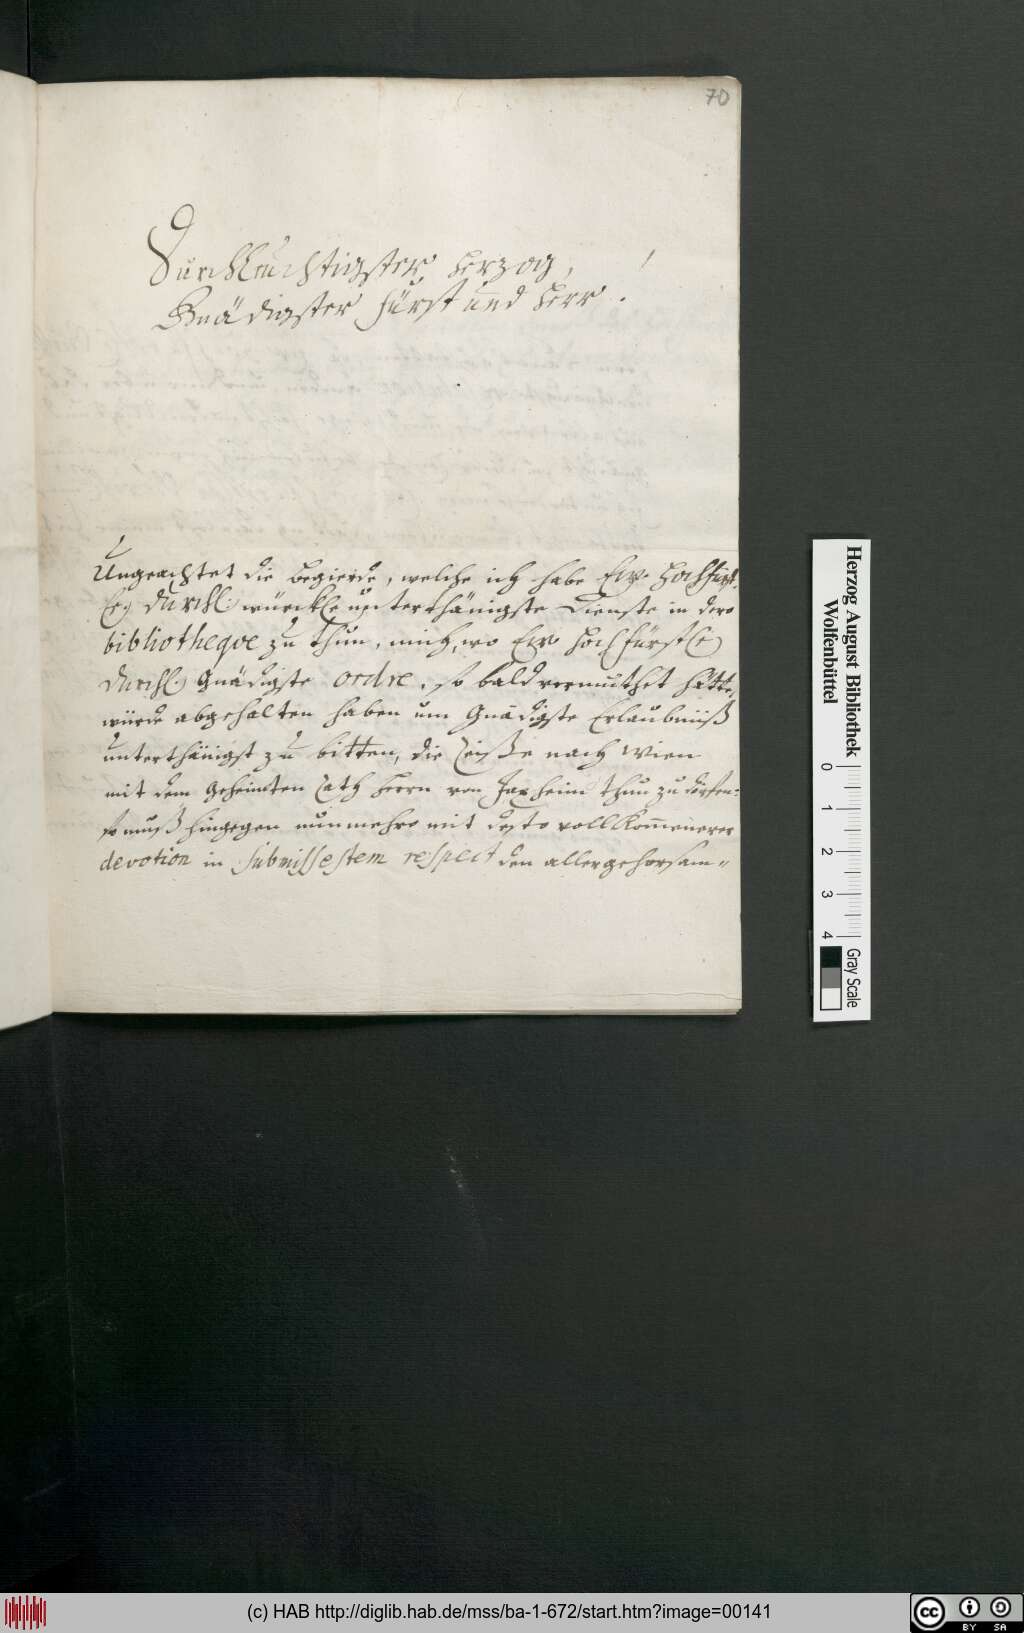 70
Durchleuchtigster Herzog,
Gnädigster Fürst und Herr!
Ungeachtet die Begierde, welche ich habe Ew. Hochfürst-
Durchl. würckl. unterthänigste Dienste in dero
bibliotheqve zu thun, mich, wo Ew. Hochfürstl.
Durchl. Gnädigste ordre, so bald vermuthet hätte,
würde abgehalten haben um Gnädigste Erlaubniß
unterthänigst zu bitten, die Reiße nach Wien
mit dem Geheimten Rath Herrn von Imhoff thun zu dörfen:
so muß hingegen nunmehro mit desto vollkommenerer
devotion in submissestem respect den allergehorsam-
Herzog August Bibliothek
Wolfenbüttel
0 1 2 3 4
Gray Scale
(c) HAB http://diglib.hab.de/mss/ba-1-672/start.htm?image=00141
CC BY SA